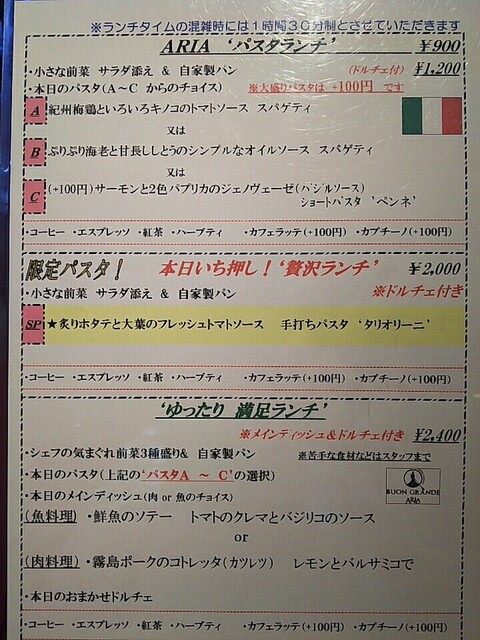 ※ランチタイムの混雑時には1時間30分制とさせていただきます
ARIA ‘パスタランチ’ ¥900
・小さな前菜 サラダ添え & 自家製パン (ドルチェ付) ¥1,200
・本日のパスタ(A～C からのチョイス) ※大盛りパスタは +100円 です
A 紀州梅鶏といろいろキノコのトマトソース スパゲティ
又は
B ぷりぷり海老と甘長ししとうのシンプルなオイルソース スパゲティ
又は
C (+100円)サーモンと2色パプリカのジェノヴェーゼ(バジルソース)
ショートパスタ ‘ペンネ’
・コーヒー ・エスプレッソ ・紅茶 ・ハーブティ ・カフェラッテ(+100円) ・カプチーノ(+100円)
限定パスタ! 本日いち押し!‘贅沢ランチ’ ¥2,000
・小さな前菜 サラダ添え & 自家製パン ※ドルチェ付き
SP ★炙りホタテと大葉のフレッシュトマトソース 手打ちパスタ ‘タリオリーニ’
・コーヒー ・エスプレッソ ・紅茶 ・ハーブティ ・カフェラッテ(+100円) ・カプチーノ(+100円)
‘ゆったり 満足ランチ’
※メインディッシュ&ドルチェ付き ¥2,400
・シェフの気まぐれ前菜3種盛り& 自家製パン ※苦手な食材などはスタッフまで
・本日のパスタ(上記の‘パスタA ～ C’の選択)
・本日のメインディッシュ(肉 or 魚のチョイス)
BUON GRANDE
ARIA
(魚料理)・鮮魚のソテー トマトのクレマとバジリコのソース
or
(肉料理)・霧島ポークのコトレッタ(カツレツ) レモンとバルサミコで
・本日のおまかせドルチェ
・コーヒー ・エスプレッソ ・紅茶 ・ハーブティ ・カフェラッテ(+100円) ・カプチーノ(+100円)